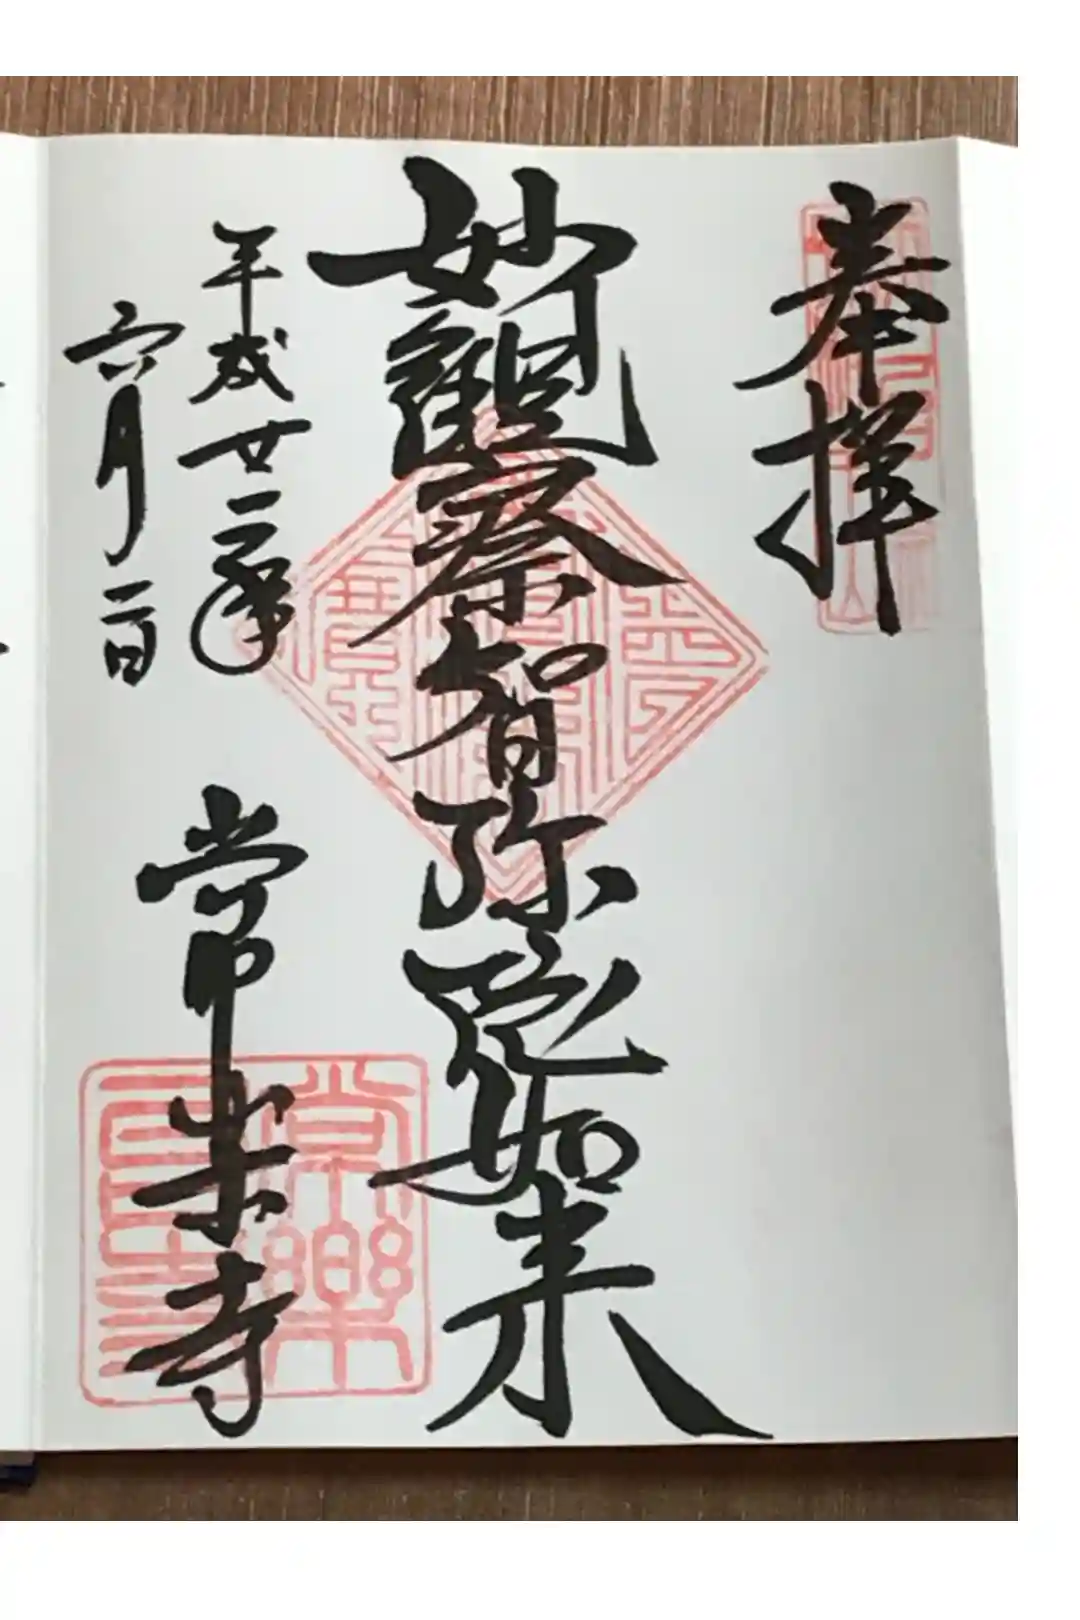 奉拝
妙観察智弥陀如来
平成廿二年
六月二日
常楽寺
常楽